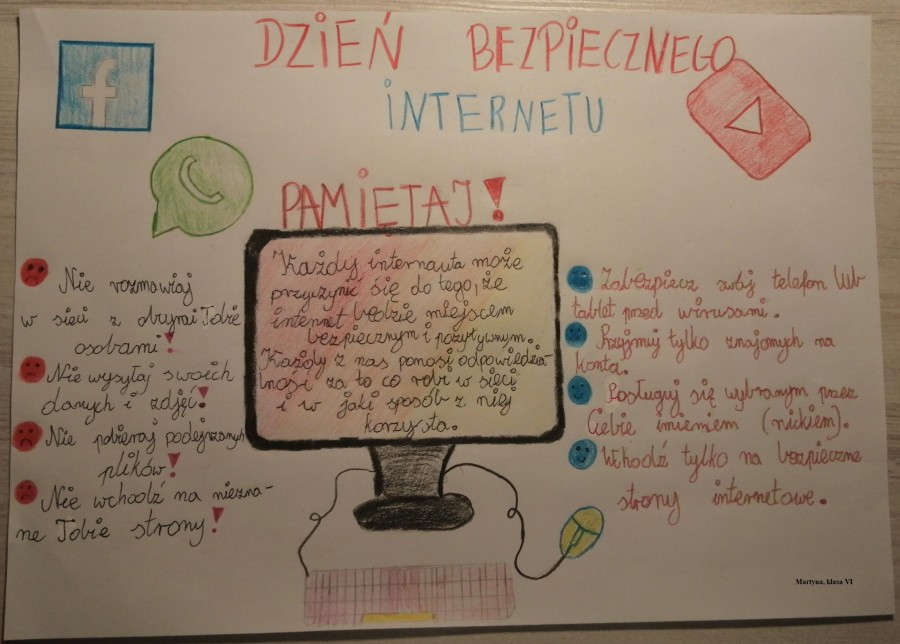 DZIEŃ BEZPIECZNEGO
INTERNETU
PAMIĘTAJ!
Każdy internauta może
przyczynić się do tego, że
internet będzie miejscem
bezpiecznym i pozytywnym.
Każdy z nas ponosi odpowiedzia-
lność za to co robi w sieci
i w jaki sposób z niej
korzysta.
Nie rozmawiaj
w sieci z obcymi Tobie
osobami!
Nie wysyłaj swoich
danych i zdjęć!
Nie pobieraj podejrzanych
plików!
Nie wchodź na niezna-
ne Tobie strony!
Zabezpiecz swój telefon lub
tablet przed wirusami.
Przyjmuj tylko znajomych na
konta.
Posługuj się wybranym przez
Ciebie imieniem (nickiem).
Wchodź tylko na bezpieczne
strony internetowe.
Martyna, klasa VI